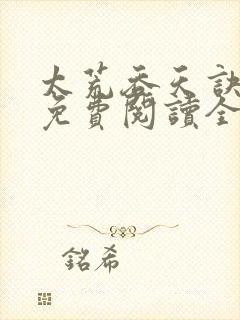 太荒吞天訣
免費閱讀全
銘希